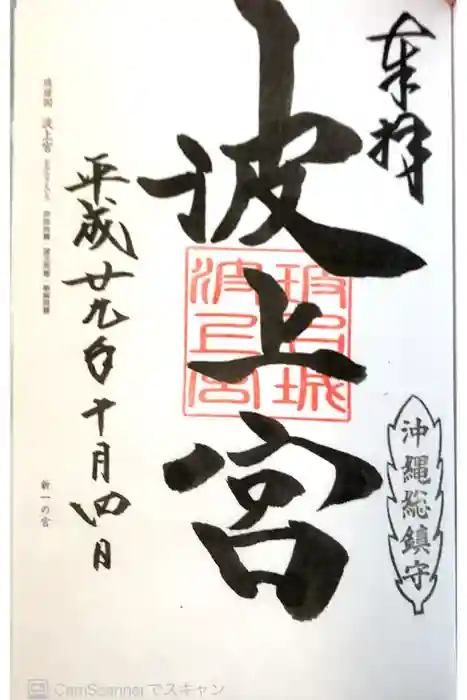 奉拝
沖縄総鎮守
波上宮
波上宮
平成廿九年十月四日
琉球国 波上宮
新一の宮
CamScannerでスキャン